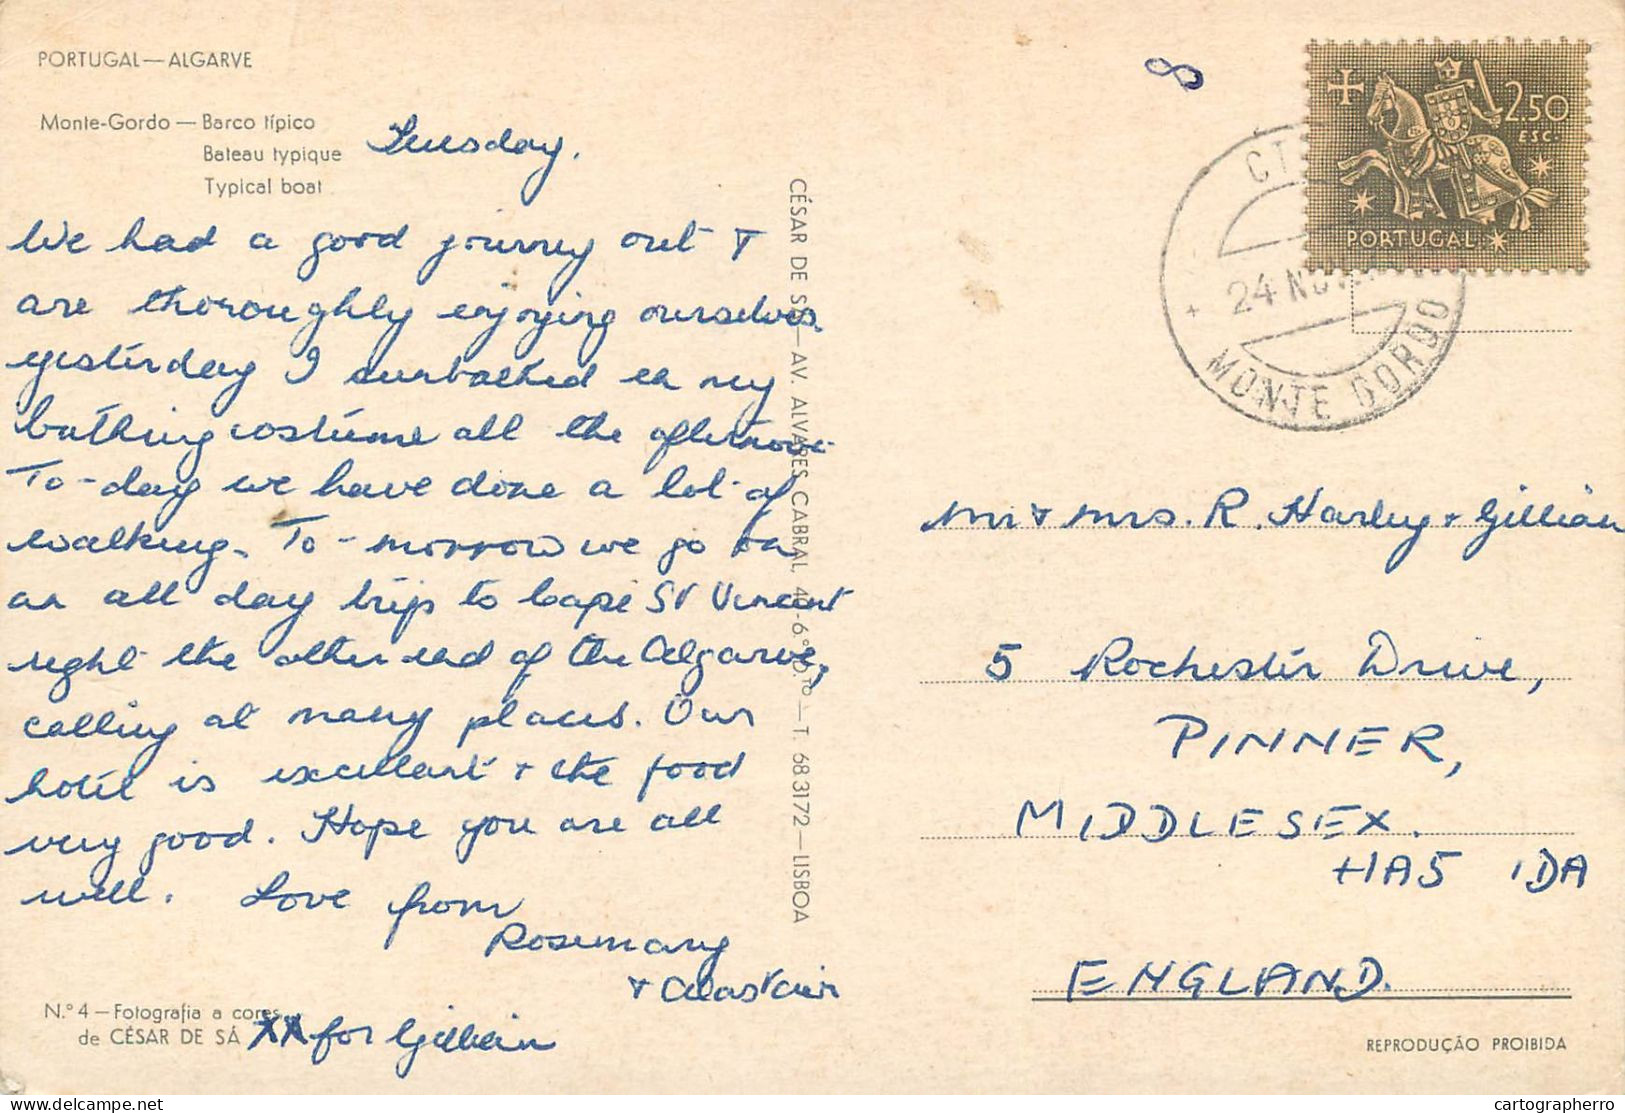 PORTUGAL — ALGARVE
Monte-Gordo — Barco típico
Bateau typique
Typical boat
Tuesday.
We had a good journey out &
are thoroughly enjoying ourselves.
Yesterday I sunbathed in my
bathing costume all the afternoon.
To-day we have done a lot of
walking. To-morrow we go on
an all day trip to Cape St Vincent
right the other end of the Algarve,
calling at many places. Our
hotel is excellent & the food
very good. Hope you are all
well. Love from
Rosemary
& Alastair
XX for Gillian
N.º 4 — Fotografia a cores
de CÉSAR DE SÁ
CÉSAR DE SÁ — AV. ALVARES CABRAL, 40-6.º — T. 683172 — LISBOA
8
2$50
ESC.
PORTUGAL
24 NOV.
MONTE GORDO
Mr & Mrs. R. Harley & Gillian
5 Rochester Drive,
PINNER,
MIDDLESEX.
HA5 1DA
ENGLAND.
REPRODUÇÃO PROIBIDA
cartographerro